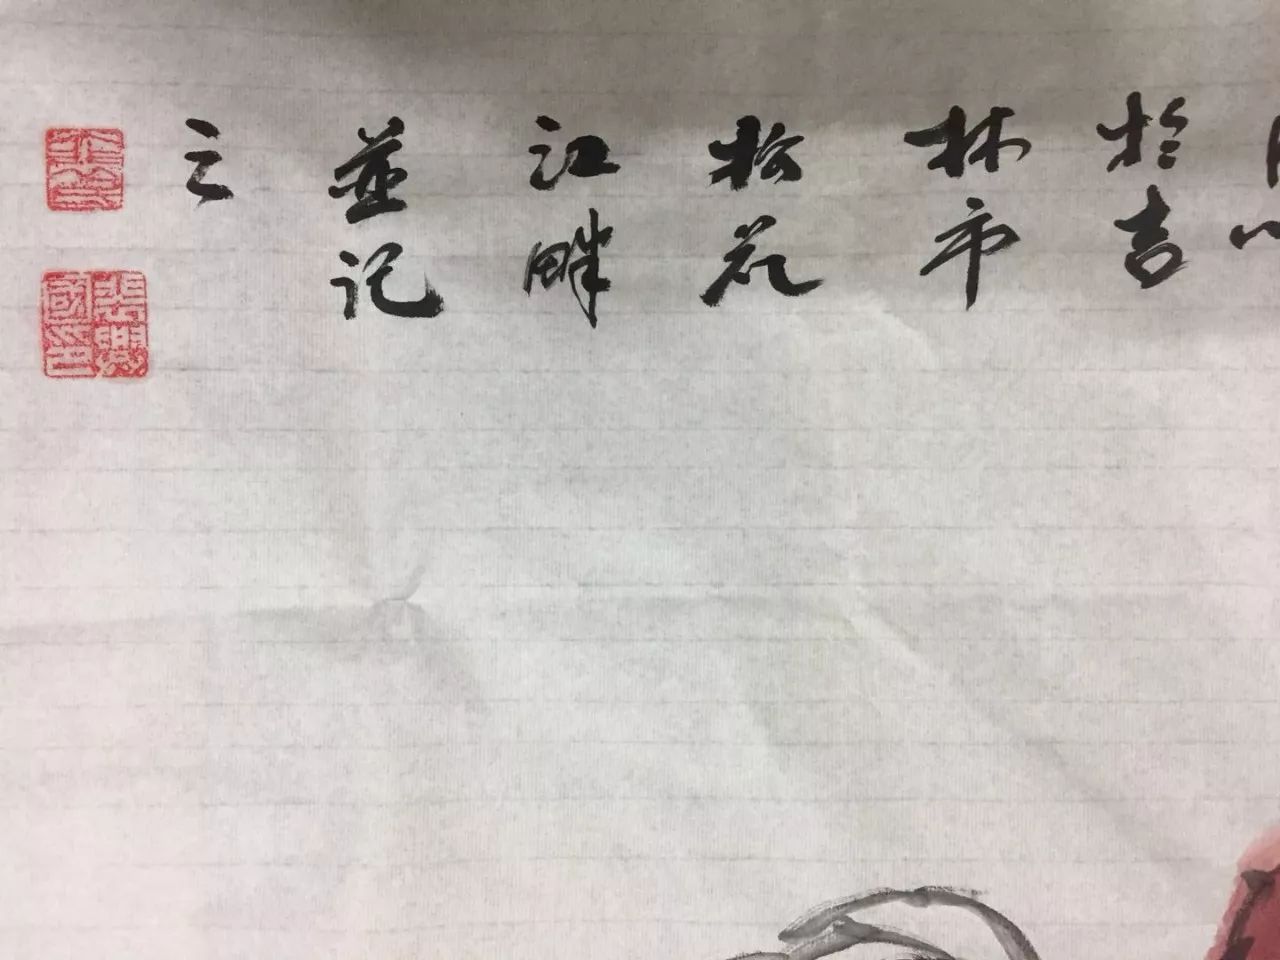 於吉
林市
松花
江畔
並记
之